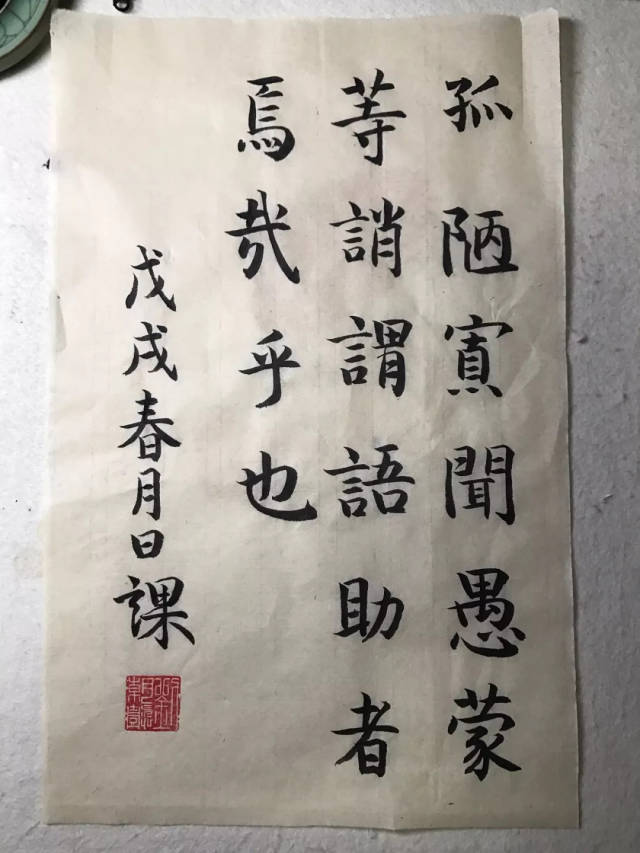 孤陋寡聞愚蒙
等誚謂語助者
焉哉乎也
戊戌春月日課